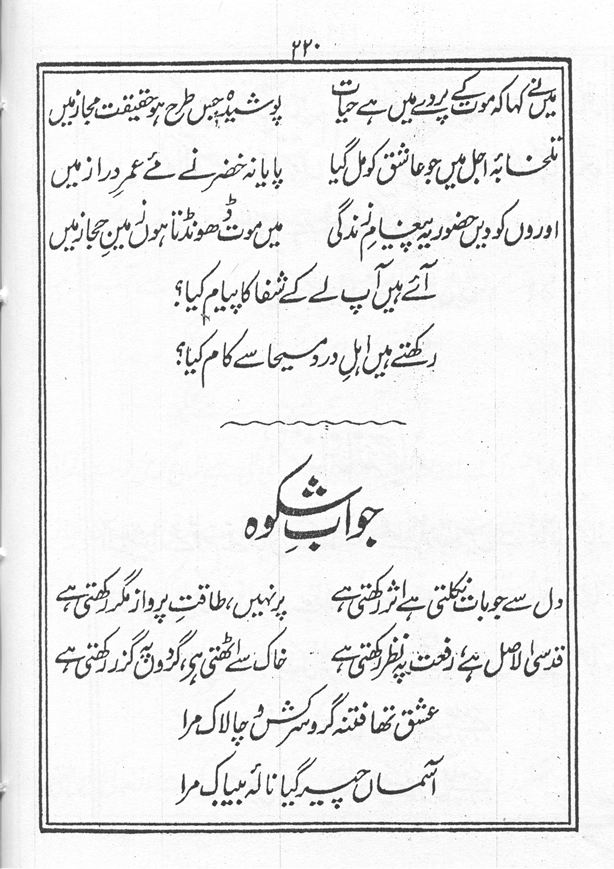 ۲۲۰
میں نے کہا کہ موت کے پردے میں ہے حیات پوشیدہ جس طرح ہو حقیقت مجاز میں
تلخابۂ اجل میں جو عاشق کو مل گیا پایا نہ خضر نے مئے عمر دراز میں
اوروں کو دیں حضور یہ پیغام زندگی میں موت ڈھونڈتا ہوں زمین حجاز میں
آئے ہیں آپ لے کے شفا کا پیام کیا؟
رکھتے ہیں اہل درد مسیحا سے کام کیا؟
جواب شکوہ
دل سے جو بات نکلتی ہے اثر رکھتی ہے پر نہیں، طاقت پرواز مگر رکھتی ہے
قدسی الاصل ہے، رفعت پہ نظر رکھتی ہے خاک سے اٹھتی ہے، گردوں پہ گزر رکھتی ہے
عشق تھا فتنہ گر و سرکش و چالاک مرا
آسماں چیر گیا نالۂ بیباک مرا